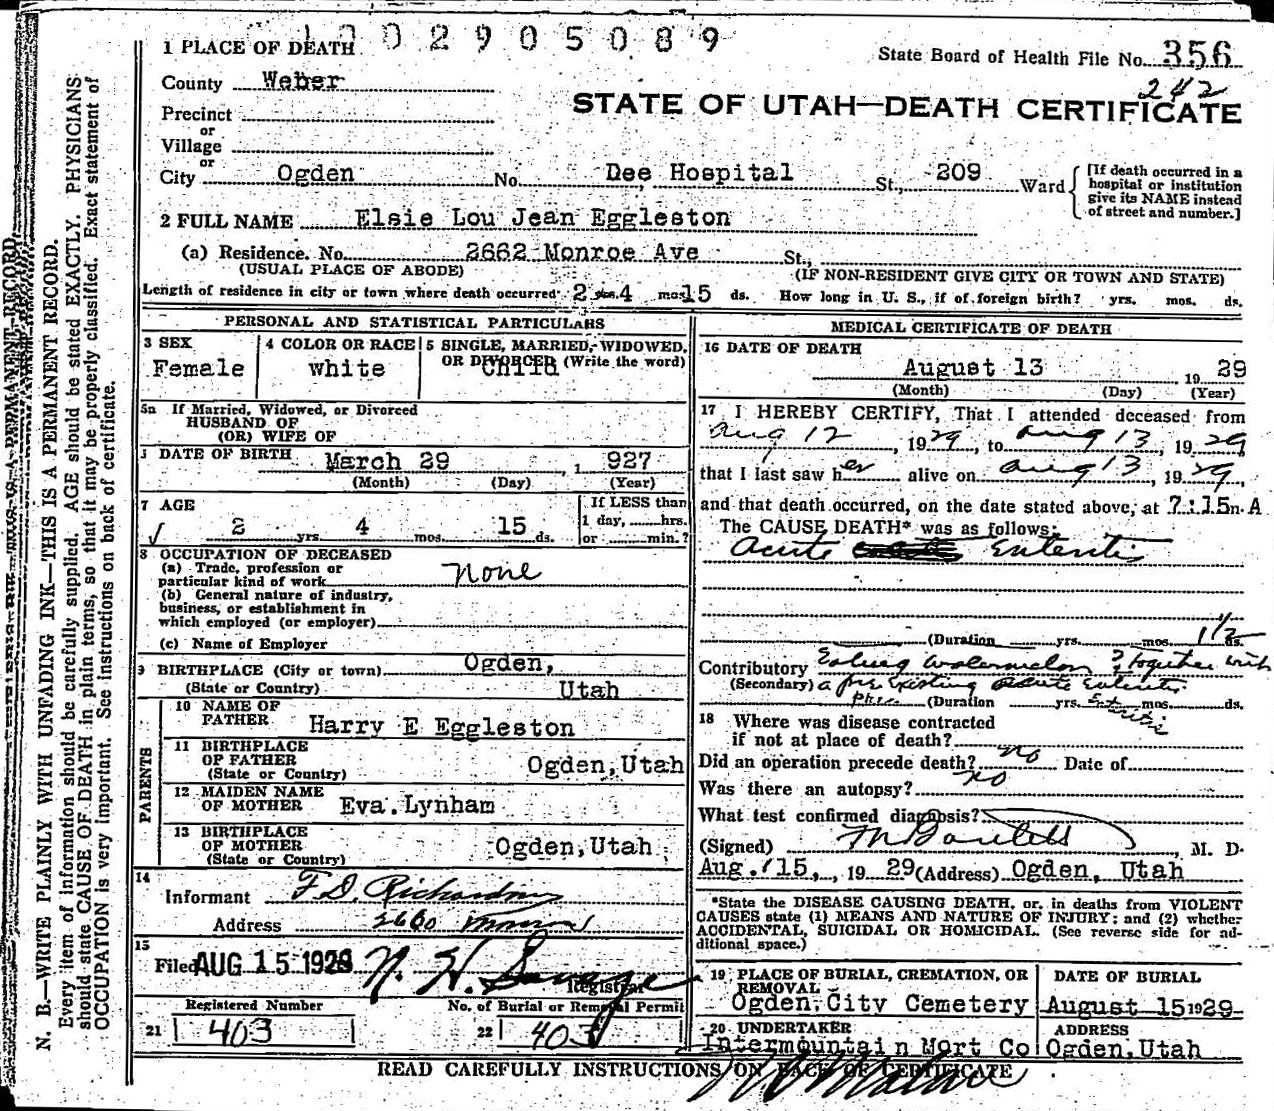 1002905089
1 PLACE OF DEATH
State Board of Health File No. 356
County Weber
242
STATE OF UTAH—DEATH CERTIFICATE
Precinct
or
Village
or
City Ogden No. Dee Hospital St., 209 Ward
[If death occurred in a
hospital or institution
give its NAME instead
of street and number.]
2 FULL NAME Elsie Lou Jean Eggleston
(a) Residence. No. 2662 Monroe Ave St.,
(USUAL PLACE OF ABODE) (IF NON-RESIDENT GIVE CITY OR TOWN AND STATE)
Length of residence in city or town where death occurred 2 yrs. 4 mos. 15 ds. How long in U. S., if of foreign birth? yrs. mos. ds.
PERSONAL AND STATISTICAL PARTICULARS
3 SEX
Female
4 COLOR OR RACE
white
5 SINGLE, MARRIED, WIDOWED,
OR DIVORCED (Write the word)
Child
5a If Married, Widowed, or Divorced
HUSBAND OF
(OR) WIFE OF
DATE OF BIRTH March 29, 1927
(Month) (Day) (Year)
7 AGE
2 yrs. 4 mos. 15 ds.
If LESS than
1 day, hrs.
or min.?
8 OCCUPATION OF DECEASED
(a) Trade, profession or
particular kind of work None
(b) General nature of industry,
business, or establishment in
which employed (or employer)
(c) Name of Employer
9 BIRTHPLACE (City or town) Ogden,
(State or Country) Utah
PARENTS
10 NAME OF
FATHER Harry E Eggleston
11 BIRTHPLACE
OF FATHER Ogden, Utah
(State or Country)
12 MAIDEN NAME
OF MOTHER Eva Lynham
13 BIRTHPLACE
OF MOTHER Ogden, Utah
(State or Country)
14
Informant F. D. Richardson
Address 2660 Monroe
15
Filed AUG 15 1929 N. H. Savage
Registrar
Registered Number
21 403
No. of Burial or Removal Permit
22 403
MEDICAL CERTIFICATE OF DEATH
16 DATE OF DEATH
August 13 19 29
(Month) (Day) (Year)
17 I HEREBY CERTIFY, That I attended deceased from
Aug 12, 1929, to Aug 13 1929,
that I last saw her alive on Aug 13, 1929,
and that death occurred, on the date stated above, at 7:15 m. A
The CAUSE DEATH* was as follows:
Acute Enteritis
(Duration yrs. mos. 1 1/2 ds.
Contributory Eating watermelon ? together with
(Secondary) a pre existing acute Enteritis.
(Duration yrs. mos. ds.
18 Where was disease contracted
if not at place of death?
Did an operation precede death? no Date of
Was there an autopsy? no
What test confirmed diagnosis?
(Signed) M Bartlett, M. D.
Aug. 15, , 19 29 (Address) Ogden, Utah
*State the DISEASE CAUSING DEATH, or, in deaths from VIOLENT
CAUSES state (1) MEANS AND NATURE OF INJURY; and (2) whether
ACCIDENTAL, SUICIDAL OR HOMICIDAL. (See reverse side for ad-
ditional space.)
19 PLACE OF BURIAL, CREMATION, OR
REMOVAL
Ogden City Cemetery
DATE OF BURIAL
August 15 1929
20 UNDERTAKER
Intermountain Mort Co
ADDRESS
Ogden, Utah
READ CAREFULLY INSTRUCTIONS ON BACK OF CERTIFICATE
N. B.—WRITE PLAINLY WITH UNFADING INK—THIS IS A PERMANENT RECORD.
Every item of information should be carefully supplied. AGE should be stated EXACTLY. PHYSICIANS
should state CAUSE OF DEATH in plain terms, so that it may be properly classified. Exact statement of
OCCUPATION is very important. See instructions on back of certificate.